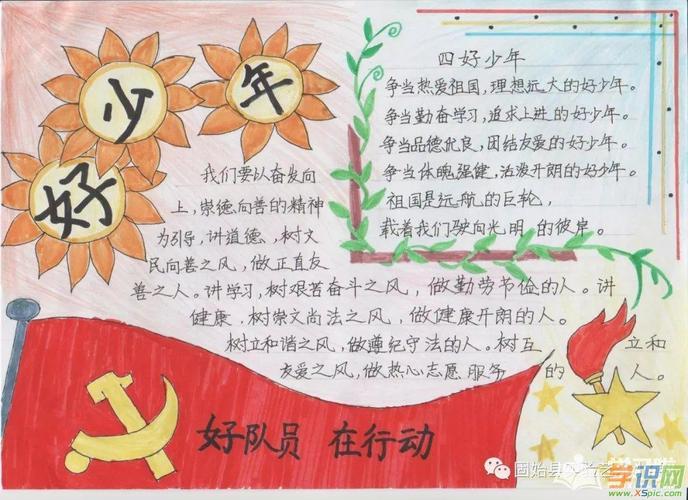 好少年
四好少年
争当热爱祖国，理想远大的好少年。
争当勤奋学习，追求上进的好少年。
争当品德优良，团结友爱的好少年。
争当体魄强健，活泼开朗的好少年。
祖国是远航的巨轮，
载着我们驶向光明的彼岸。
我们要以奋发向
上，崇德向善的精神
为引导，讲道德，树文
民向善之风，做正直友
善之人。讲学习，树艰苦奋斗之风，做勤劳节俭的人。讲
健康，树崇文尚法之风，做健康开朗的人。
树立和谐之风，做遵纪守法的人。树互立和
友爱之风，做热心志愿服务的人。
好队员 在行动
固始县
学识网
www.x5pic.com